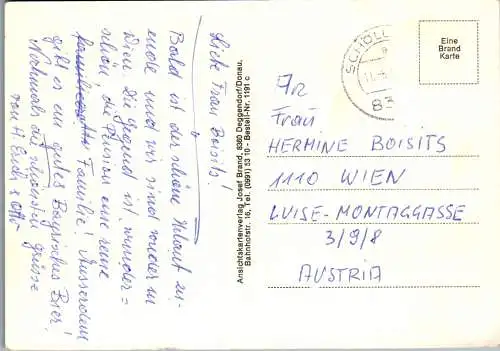 Liebe Frau Boisits!
Bald ist der schöne Urlaub zu-
ende und wir sind wieder in
Wien. Die Gegend ist wunder=
schön, die Pension eine reine
Familie! Ausserdem
gibt es ein gutes Bayrisches Bier!
Nochmals die schönsten Grüsse
von H. Erich & Otto
Ansichtskartenverlag Josef Brand, 8360 Deggendorf/Donau,
Bahnhofstr. 16, Tel. (0991) 53 10 - Bestell-Nr. 1191 c
SCHÖLL
83
Eine
Brand
Karte
An
Frau
HERMINE BOISITS
1110 WIEN
LUISE-MONTAGGASSE
3/9/8
AUSTRIA